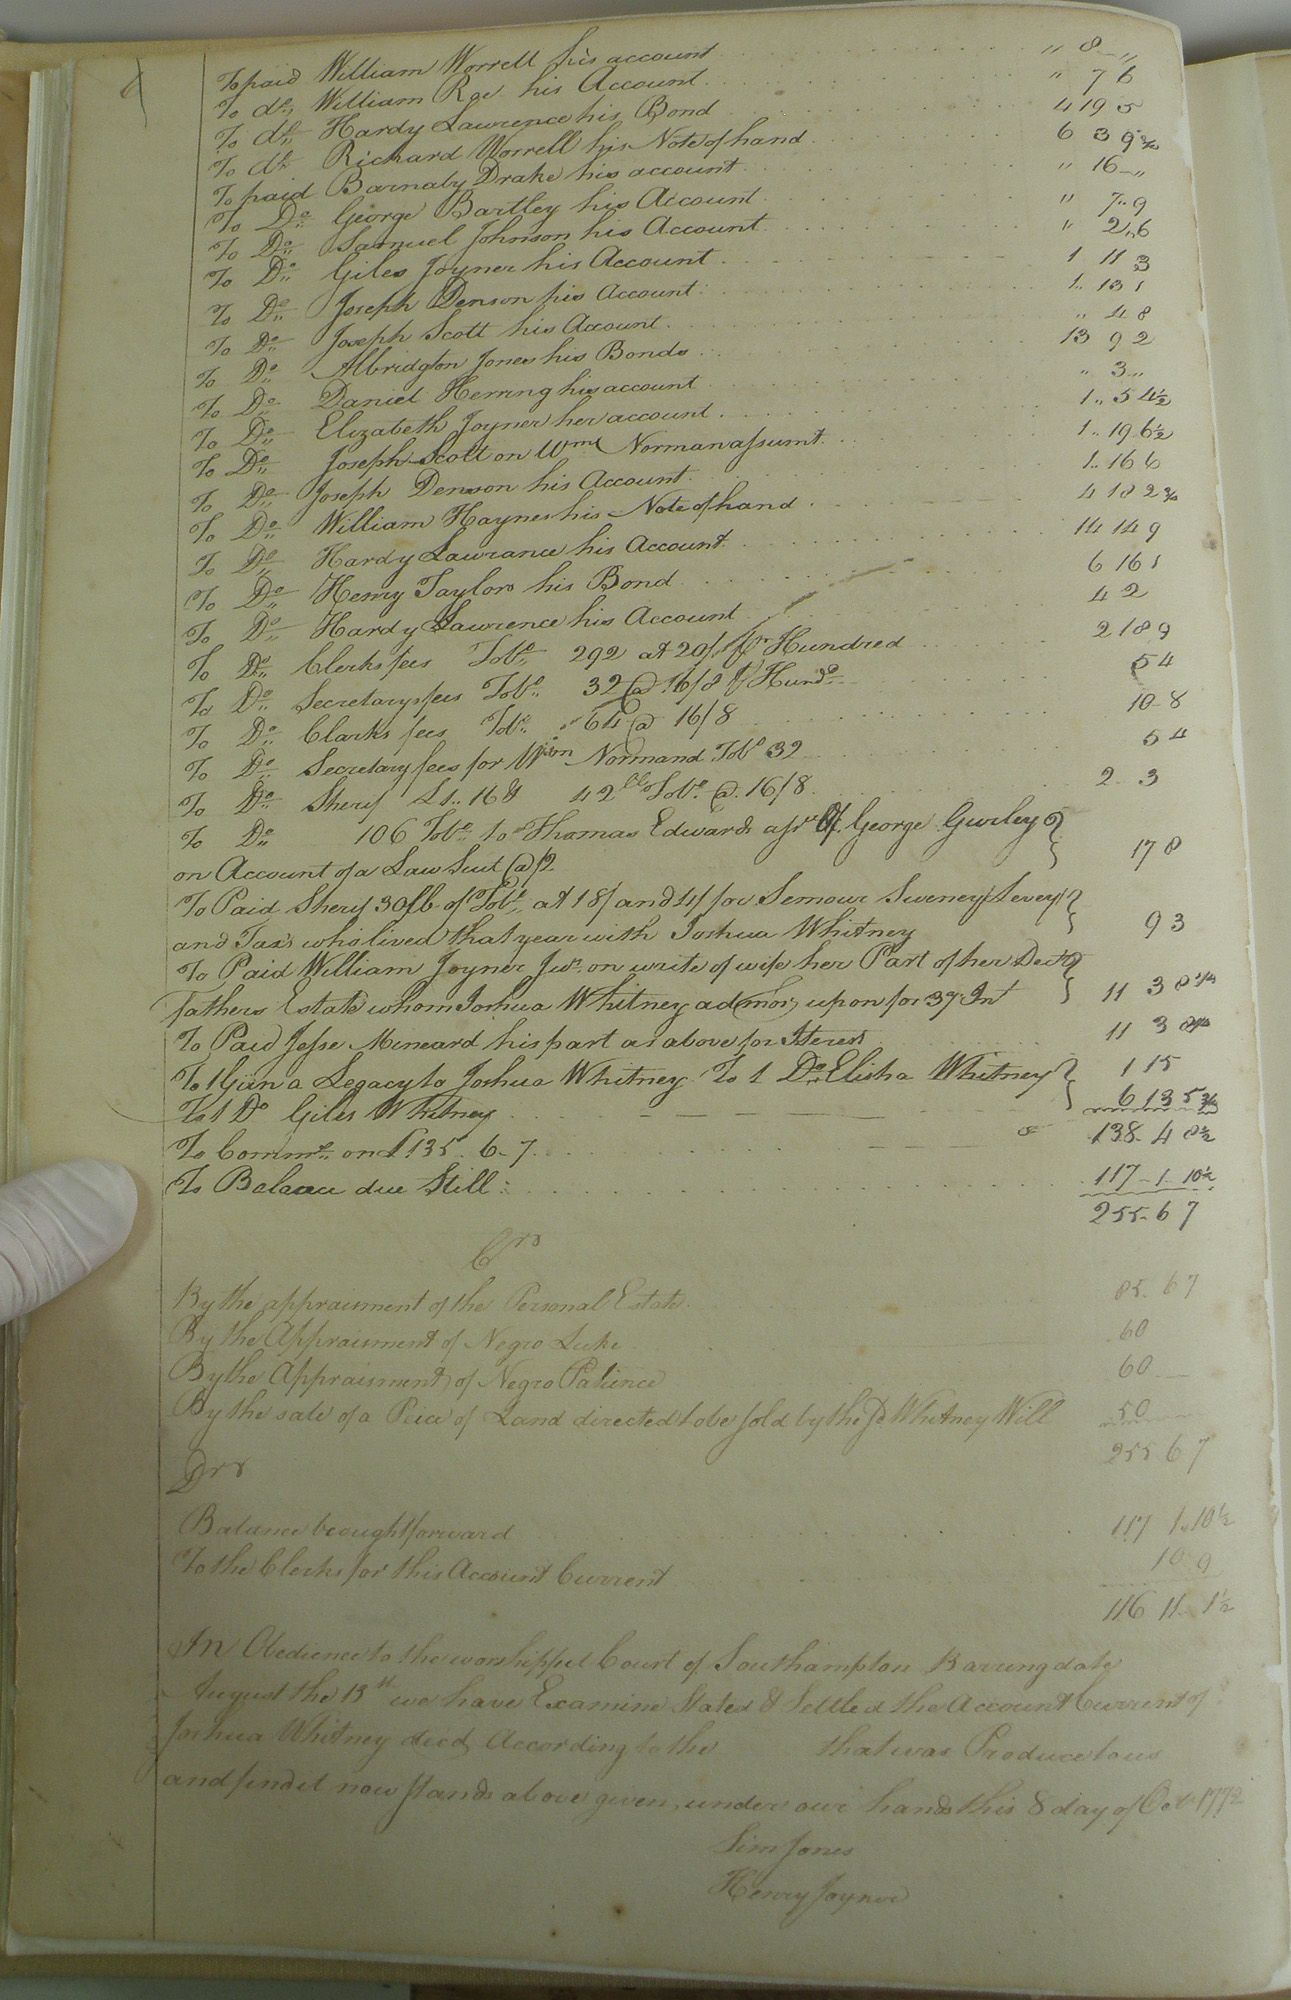 To paid William Worrell his account " 8 "
To do William Roe his Account " 7 6
To do Hardy Lawrence his Bond 4 19 5
To do Richard Worrell his Note of hand 6 3 9
To paid Barnaby Drake his account " 16 "
To Do George Bartley his Account " 7 9
To Do Samuel Johnson his Account " 2 6
To Do Giles Joyner his Account 1 11 3
To Do Joseph Denson his Account 1 13 1
To Do Joseph Scott his Account " 4 8
To Do Albridgton Jones his Bonds 13 9 2
To Do Daniel Herring his account " 3
To Do Elizabeth Joyner her account 1 5 4½
To Do Joseph Scott on Wm Norman assumt 1 19 6½
To Do Joseph Denson his Account 1 16 6
To Do William Haynes his Note of hand 4 18 2
To Do Hardy Lawrance his Account 14 14 9
To Do Henry Taylor his Bond 6 16 1
To Do Hardy Lawrence his Account 4 2
To Do Clerks fees Tobo 292 at 20/ pr Hundred 2 18 9
To Do Secretarys fees Tobo 32 @ 16/8 Hundd 5 4
To Do Clarks fees Tobo 64 @ 16/8 10 8
To Do Secretary fees for Normand Tobo 32 5 4
To Do Sherif £1 16 8 42 lb Tobo @ 16/8 2 3
To Do 106 Tobo to Thomas Edwards of George Gurley
on Account of a Law Suit @ /2 17 8
To Paid Sherif 30 lb of Tobo at 18/ and 4/ for Semour Sweney Levey
and Taxs who lived that year with Joshua Whitney 9 3
To Paid William Joyner Junr on write of wife her Part of her Decd
fathers Estate whom Joshua Whitney admor upon for 37 Int 11 3 8
To Paid Jesse Mineard his part as above for Iterest 11 3 8
To 1 Gun a Legacy to Joshua Whitney To 1 Do Elisha Whitney
To 1 Do Giles Whitney 1 15
To Commn on £135 6 7 6 13 5
138 4 8½
To Balance due Still 117 1 10½
255 6 7
Crs
By the appraisment of the Personal Estate 85 6 7
By the Appraisment of Negro Luke 60
By the Appraisment of Negro Patience 60
By the sale of a Peice of Land directed to be sold by the sd Whitney Will 50
255 6 7
Drs
Balance brought forward 117 1 10½
To the Clerks for this Account Current 10 9
116 11 1½
In Obedience to the worshipful Court of Southampton Barring date
August the 13th we have Examine Stated & Settled the Account Current of
Joshua Whitney decd According to the that was Produce to us
and find it now stands above given, under our hands this 8 day of Octr 1772
Sim Jones
Henry Joyner